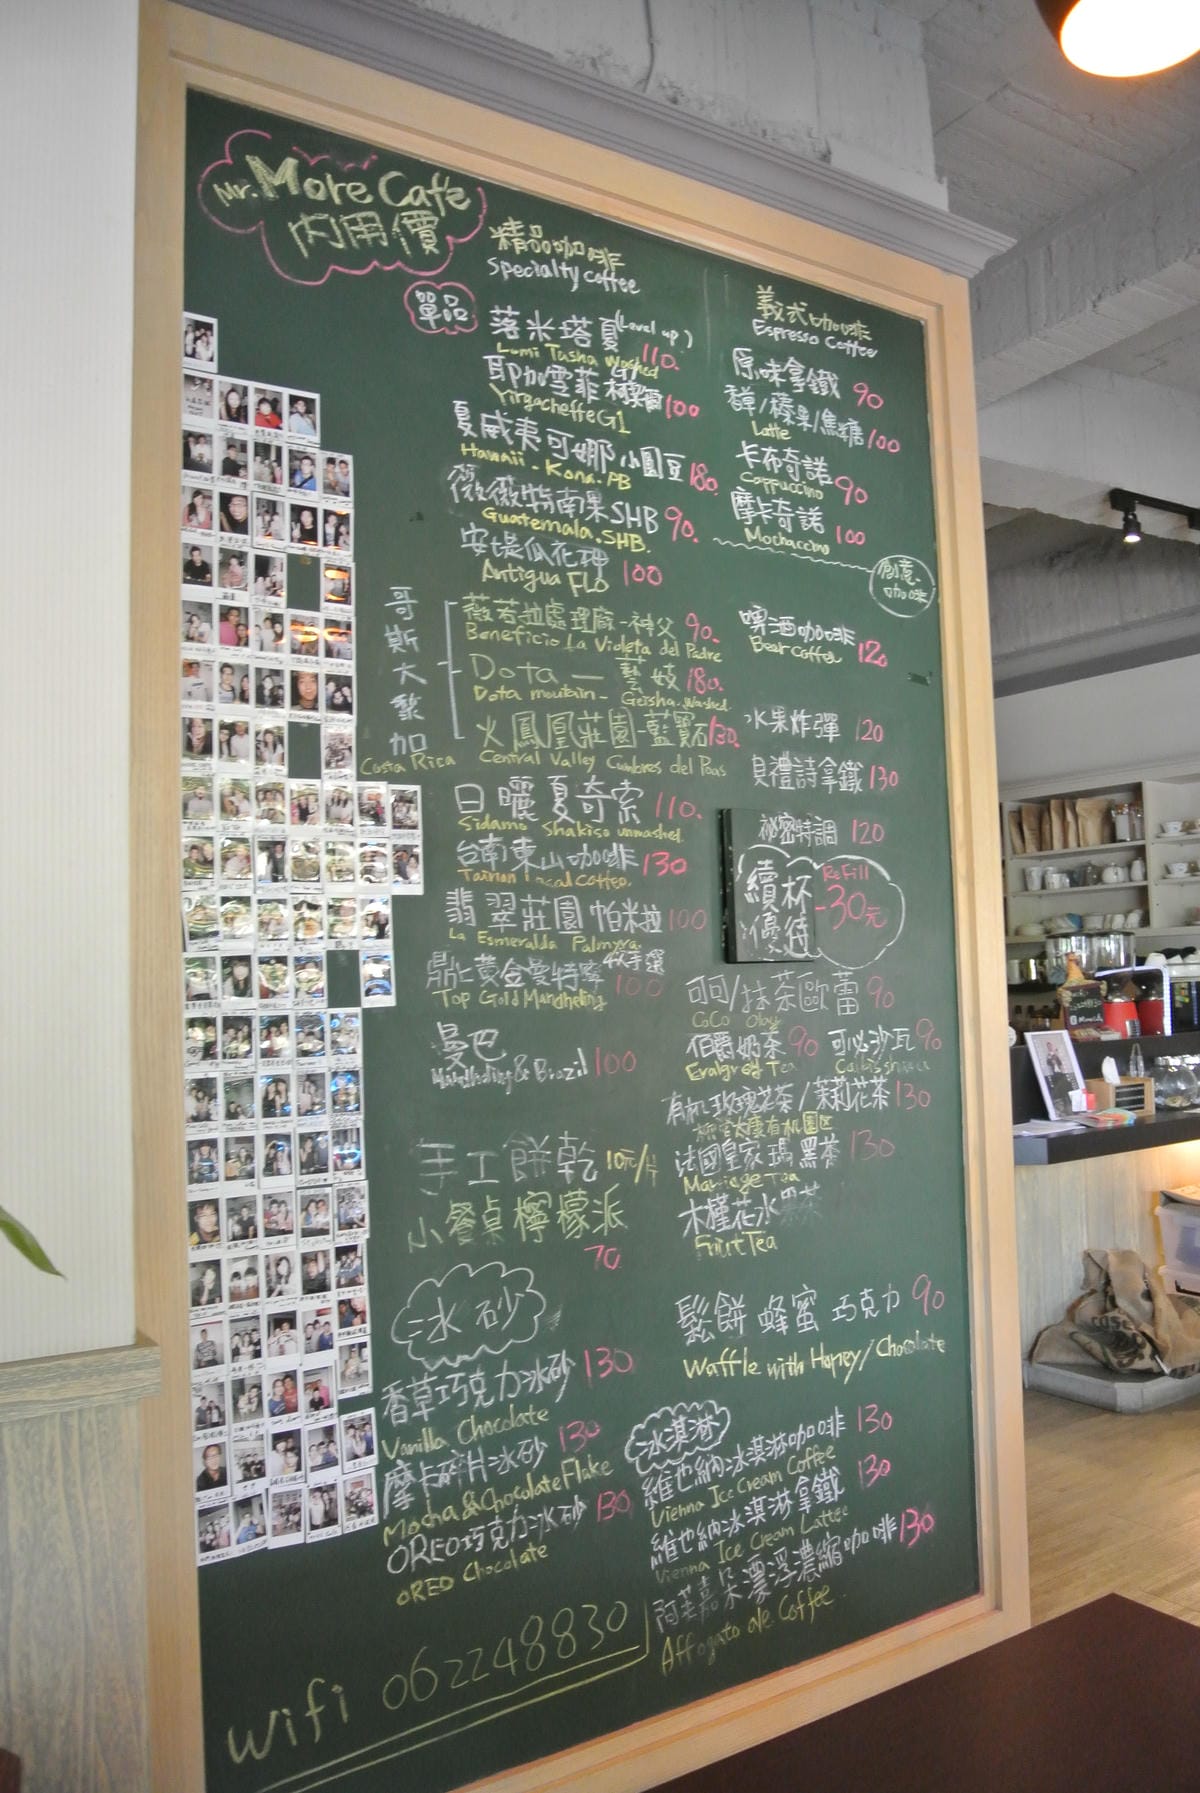 Mr. More Cafe
內用價
精品咖啡
Specialty coffee
單品
落米塔夏 (Level up)
Lomi Tasha Washed 110.
耶加雪菲 G1
YirgacheffeG1 100
夏威夷可娜小圓豆 180.
Hawaii - Kona. PB
薇薇特南果SHB 90.
Guatemala. SHB.
安堤瓜花神
Antigua FLO 100
哥斯大黎加
Costa Rica
薇若拉處理廠-神父 90.
Beneficio La Violeta del Padre
Dota — 藝妓 180.
Dota moutain - Geisha. Washed.
火鳳凰莊園-藍寶石 130.
Central Valley Cumbres del Poas
日曬夏奇索 110.
Sidamo Shakiso unwashed.
台南東山咖啡 130
Tainan Local Coffee.
翡翠莊園帕米拉 100
La Esmeralda Palmyra.
鼎上黃金曼特寧 100
Top Gold Mandheling
曼巴
Mandheling & Brazil 100
手工餅乾 10元/片
小餐桌檸檬派
70.
冰砂
香草巧克力冰砂 130
Vanilla Chocolate
摩卡碎片冰砂 130
Mocha & Chocolate Flake
OREO巧克力冰砂 130
OREO Chocolate
wifi 062248830
義式咖啡
Espresso Coffee
原味拿鐵 90
香草/榛果/焦糖 100
Latte
卡布奇諾 90
Cappuccino
摩卡奇諾 100
Mochaccino
創意咖啡
啤酒咖啡 120
Beer Coffee
水果炸彈 120
貝禮詩拿鐵 130
祕密特調 120
續杯優待
Refill
-30元
可可/抹茶歐蕾 90
CoCo Olay
伯爵奶茶 90 可必沙瓦 90
有機玫瑰花茶/茉莉花茶 130
法國皇家瑪黑茶 130
Marriage Tea
木槿花水果茶
Fruit Tea
鬆餅 蜂蜜 巧克力 90
Waffle with Honey/Chocolate
冰淇淋
維也納冰淇淋咖啡 130
Vienna Ice Cream Coffee
維也納冰淇淋拿鐵 130
Vienna Ice Cream Lattee
阿芙嘉朵漂浮濃縮咖啡 130
Affogato ale Coffee